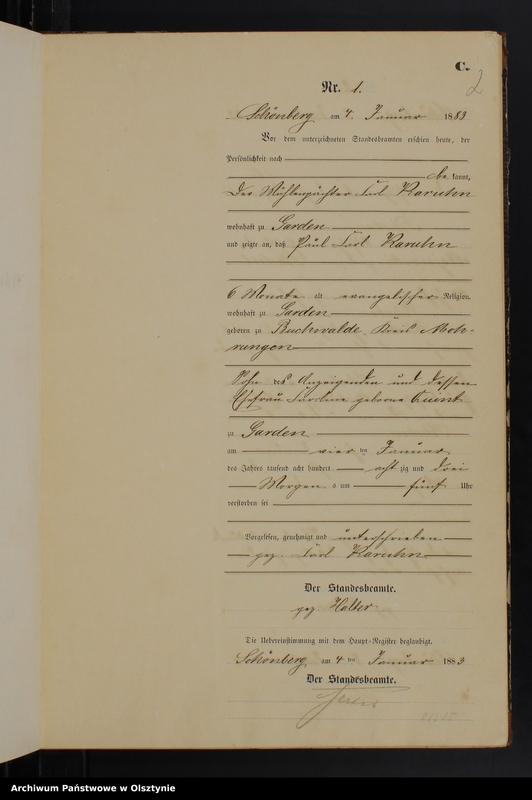 C.
2
Nr. 1.
Schönberg am 4. Januar 1883
Vor dem unterzeichneten Standesbeamten erschien heute, der
Persönlichkeit nach
be kannt,
der Mühlenpächter Carl Karuhn
wohnhaft zu Garden
und zeigte an, daß Paul Carl Karuhn
6 Monate alt evangelischer Religion,
wohnhaft zu Garden
geboren zu Buchwalde Kreis Moh-
rungen
Sohn des Anzeigenden und dessen
Ehefrau Caroline geborne Quint
zu Garden
am vier ten Januar
des Jahres tausend acht hundert acht zig und drei
Morgens um fünf Uhr
verstorben sei
Vorgelesen, genehmigt und unterschrieben
gez. Carl Karuhn
Der Standesbeamte.
gez. Halter
Die Uebereinstimmung mit dem Haupt-Register beglaubigt.
Schönberg am 4 ten Januar 1883
Der Standesbeamte.
Archiwum Państwowe w Olsztynie